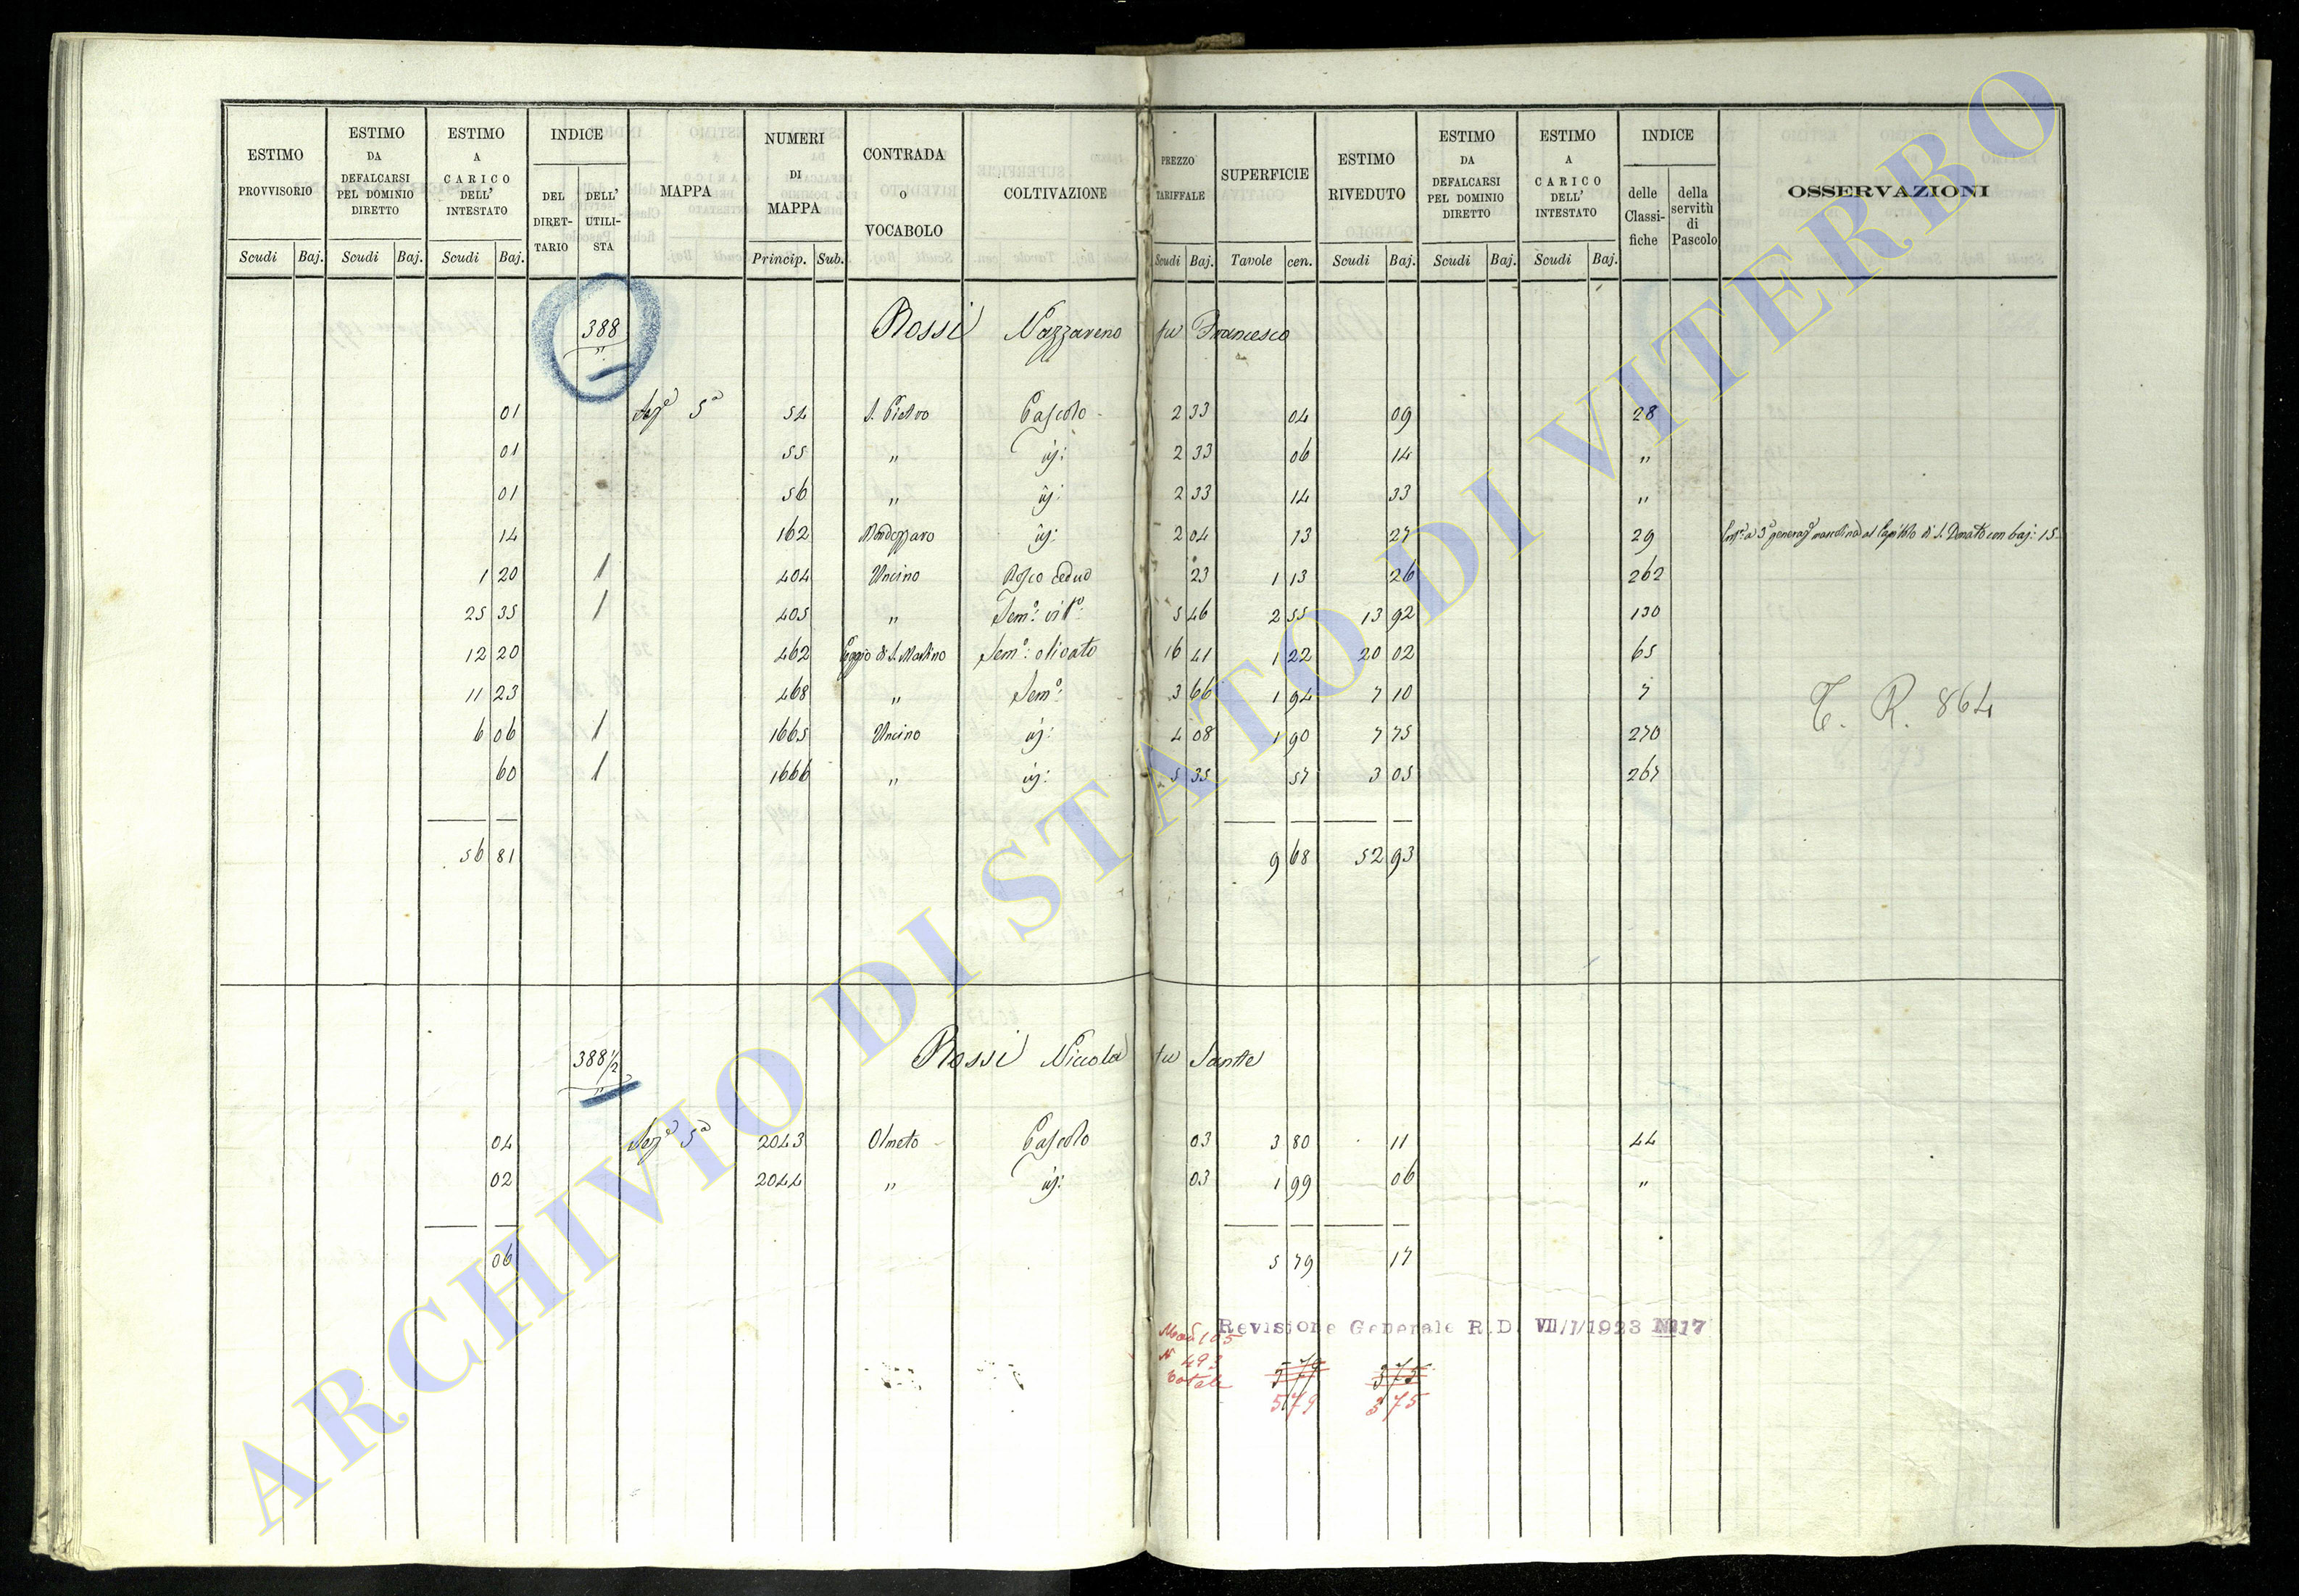 ESTIMO PROVVISORIO | ESTIMO DA DEFALCARSI PEL DOMINIO DIRETTO | ESTIMO A CARICO DELL' INTESTATO | INDICE DEL DIRETTARIO | DELL' UTILISTA | MAPPA | NUMERI DI MAPPA | CONTRADA O VOCABOLO | COLTIVAZIONE | PREZZO TARIFFALE | SUPERFICIE | ESTIMO RIVEDUTO | ESTIMO DA DEFALCARSI PEL DOMINIO DIRETTO | ESTIMO A CARICO DELL' INTESTATO | INDICE delle Classifiche | della servitù di Pascolo | OSSERVAZIONI
Scudi Baj. Scudi Baj. Scudi Baj. Princip. Sub. Scudi Baj. Tavole cen. Scudi Baj. Scudi Baj. Scudi Baj.
388 Rossi Nazzareno fu Francesco
01 Seze 5a 54 S. Pietro Pascolo 2 33 04 09 28
01 55 " id: 2 33 06 14 "
01 56 " id: 2 33 14 33 "
14 162 id: 2 04 13 27 29 al Capitolo di S. Donato con baj: 15
1 20 1 404 Uncino Bosco ceduo 23 1 13 26 262
25 35 1 405 " Semo: vito: 5 46 2 55 13 92 130
12 20 462 Poggio di S. Martino Semo: olivato 16 41 1 22 20 02 65
11 23 468 " Semo: 3 66 1 94 7 10 7
6 06 1 1665 Uncino id: 4 08 1 90 7 75 270
60 1 1666 " id: 5 35 57 3 05 267
T. R. 864
56 81 9 68 52 93
388 1/2 Rossi Niccola fu Sante
04 Seze 5a 2043 Olmeto Pascolo 03 3 80 11 44
02 2044 " id: 03 1 99 06 "
06 5 79 17
Revisione Generale R.D. VII/1/1923 N 17
Mod 105
N 493
Totale
5 79 3 75
5 79 3 75
ARCHIVIO DI STATO DI VITERBO